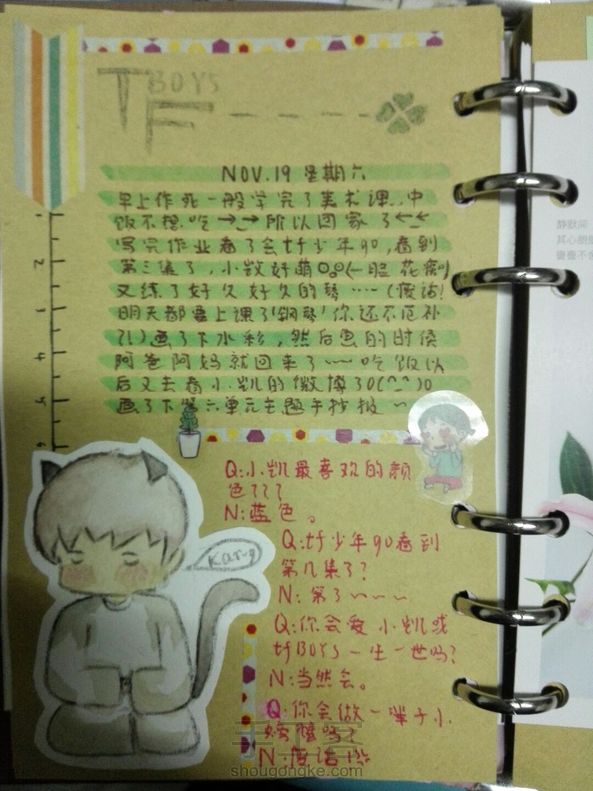 TF BOYS
NOV.19 星期六
早上作死一般学完了美术课..中
饭不想吃→_→所以回家了←_←
写完作业看了会tf少年go,看到
第三集了,小
又练了好久好久的琴……(废话!
明天都要上课了!钢琴!你还不厄补
?!)画了下水彩,然后画的时候
阿爸阿妈就回来了~~吃饭以
后又去看小凯的微博了O(^_^)O
画了下第六单元主题手抄报~
2
3
4
5
6
Q:小凯最喜欢的颜
色???
N:蓝色。
Karry
Q:tf少年go看到
第几集了?
N:第3~~~
Q:你会爱小凯或
tfBOYS一生一世吗?
N:当然会。
Q:你会做一辈子小
螃蟹吗?
N:废话!
手工客
shougongke.com